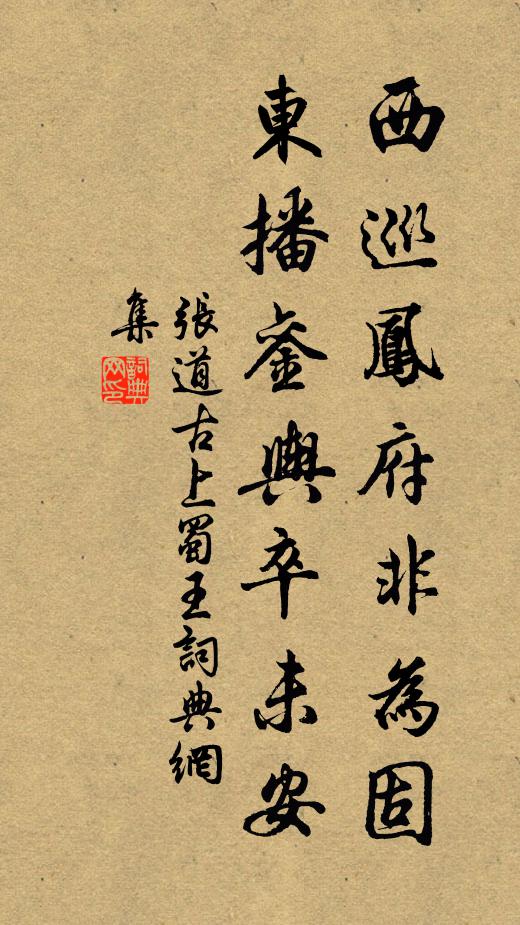 西巡鳳府非為固
東播銮輿卒未安
張道古上蜀王詞典網
集
詞典
网印